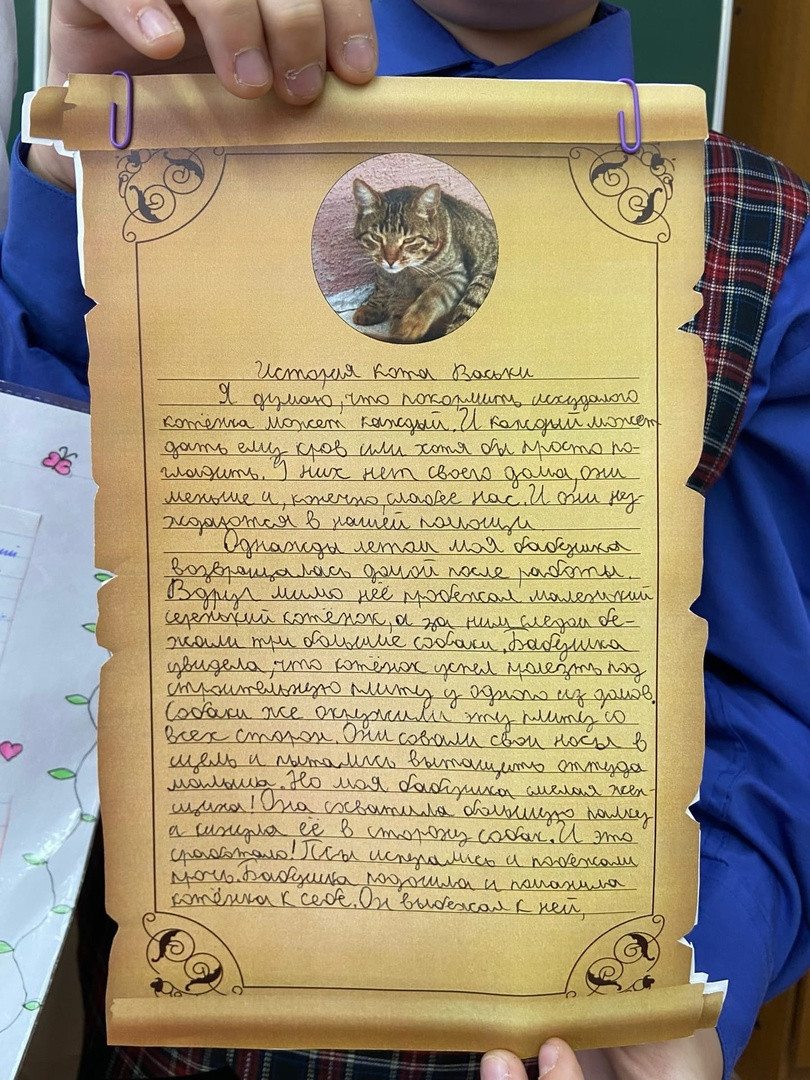 История кота Васьки
Я думаю, что покормить исхудалого
котёнка может каждый. И каждый может
дать ему кров или хотя бы просто по-
гладить. У них нет своего дома, они
меньше и, конечно, слабее нас. И они нуж-
ждаются в нашей помощи
Однажды летом моя бабушка
возвращалась домой после работы.
Вдруг мимо неё пробежал маленький
серенький котёнок, а за ним следом бе-
жали три большие собаки. Бабушка
увидела, что котёнок успел пролезть под
строительную плиту у одного из домов.
Собаки же окружили эту плиту со
всех сторон. Они совали свои носы в
щель и пытались вытащить оттуда
малыша. Но моя бабушка смелая жен-
щина! Она схватила большую палку
и кинула её в сторону собак. И это
сработало! Псы испугались и побежали
прочь. Бабушка подошла и поманила
котёнка к себе. Он выбежал к ней,